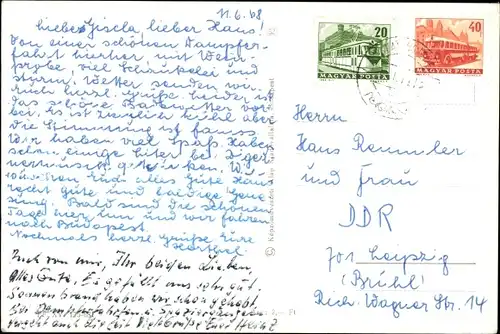 11.6.68
Liebe Gisela lieber Hans!
Von einer schönen Dampfer-
fahrt hierher mit
viel Schaukelei und
Sturm, Wetter senden wir
herzl. Grüße leider ist
das schöne Badewetter vor-
bei. Es ist ziemlich kühl aber
die Stimmung ist
Wir haben viel Spaß. Habe
schon einige Liter bei
getrunken. Wir
wünschen Euch alles Gute, Hans
recht gute und baldige Gene-
sung. Bald sind die schönen
Tage hier um und wir fahren
nach Budapest.
Nochmals herzl. Grüße Eure
Auch von mir, Ihr beiden Lieben,
alles Gute. Es gefällt uns sehr gut.
Sonnenbrand haben wir schon gehabt.
Bei Dampferfahrten u. Spaziergängen
auch die Euer Heinz
20
MAGYAR POSTA
40
MAGYAR POSTA
Herrn
Hans Remmler
und Frau
DDR
701 Leipzig
(Brühl)
Rich. Wagner Str. 14